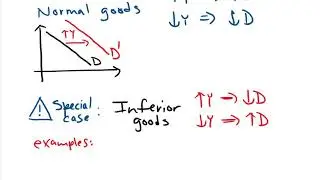 Normal goods
↓Y ⇒ ↓D
↑Y
D
D'
⚠ Special case: Inferior goods
↑Y ⇒ ↓D
↓Y ⇒ ↑D
examples: